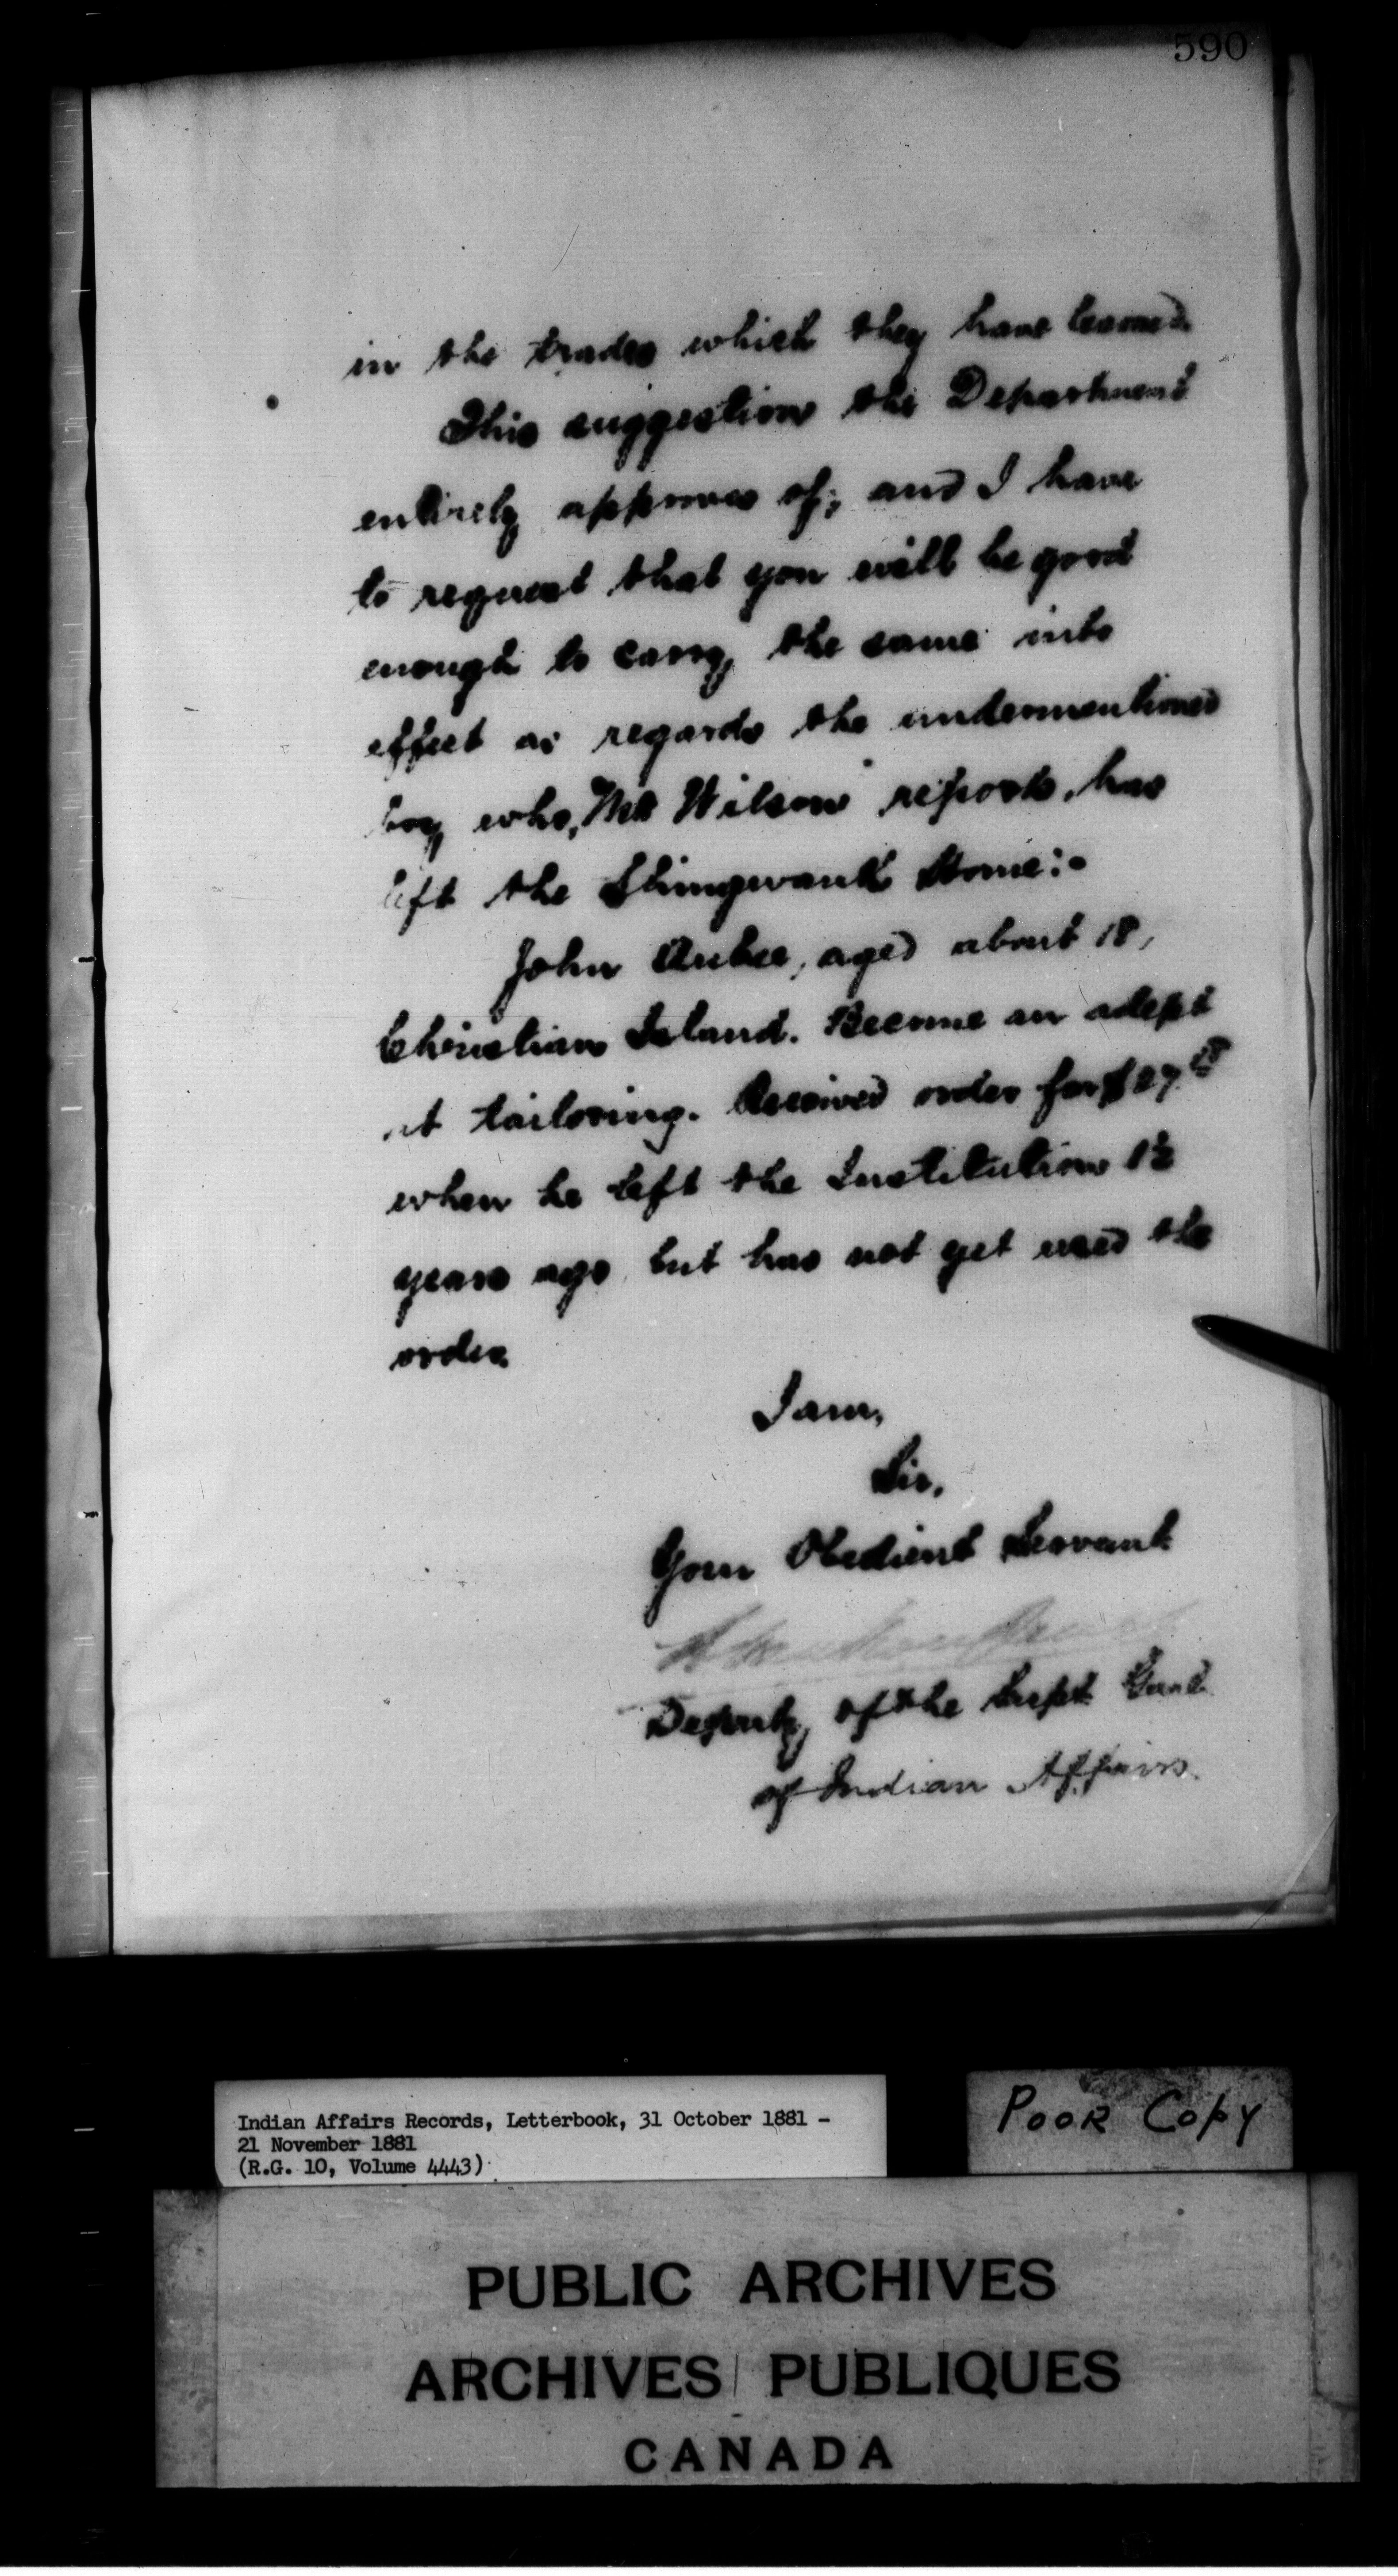 590
in the trades which they have learned
This suggestion the Department
entirely approves of; and I have
to request that you will be good
enough to carry the same into
effect as regards the undermentioned
boy who, Mr Wilson reports, has
left the Shingwauk Home:-
John aged about 18,
Christian Island. Become an adept
at tailoring. Received order for
when he left the Institution 1½
years ago but has not yet used the
order.
I am,
Sir,
Your Obedient Servant
Deputy of the Supt Genl
of Indian Affairs.
Indian Affairs Records, Letterbook, 31 October 1881 -
21 November 1881
(R.G. 10, Volume 4443)
POOR COPY
PUBLIC ARCHIVES
ARCHIVES PUBLIQUES
CANADA